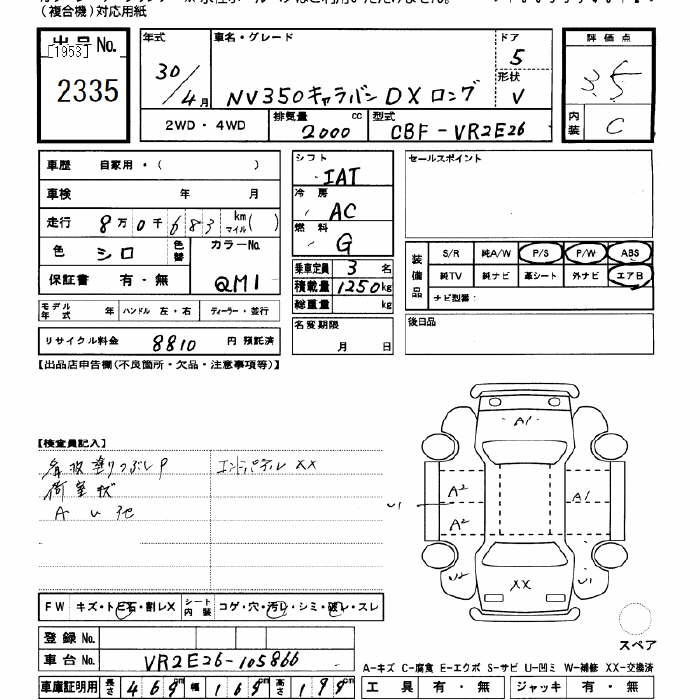 (複合機)対応用紙
出品No.
[1953]
2335
年式
30/4月
車名・グレード
NV350キャラバン DX ロング
ドア
5
形状
V
2WD・4WD
排気量
2000 cc
型式
CBF-VR2E26
評価点
3.5
内装
C
車歴 自家用・( )
車検 年 月
走行 8万0千683 km マイル( )
色 シロ 色替
カラーNo.
QM1
保証書 有・無
シフト
IAT
冷房
AC
燃料
G
乗車定員 3 名
積載量 1250 kg
総重量 kg
名変期限
月 日
セールスポイント
装備品
S/R 純A/W P/S P/W ABS
純TV 純ナビ 革シート 外ナビ エアB
ナビ型番:
後日品
モデル年式 年 ハンドル 左・右 ディーラー・並行
リサイクル料金 8810 円 預託済
【出品店申告欄(不良箇所・欠品・注意事項等)】
【検査員記入】
塗りつぶしP
エンドパネル XX
荷室
A U
A1
A2
A2
A1
U1
U2
XX
U1
FW キズ・トビ石・割レX
シート内装 コゲ・穴・汚レ・シミ・破レ・スレ
登録No.
車台No. VR2E26-105866
車庫証明用 長さ 469cm 幅 169cm 高さ 199cm
スペア
A-キズ C-腐食 E-エクボ S-サビ U-凹ミ W-補修 XX-交換済
工具 有・無 ジャッキ 有・無